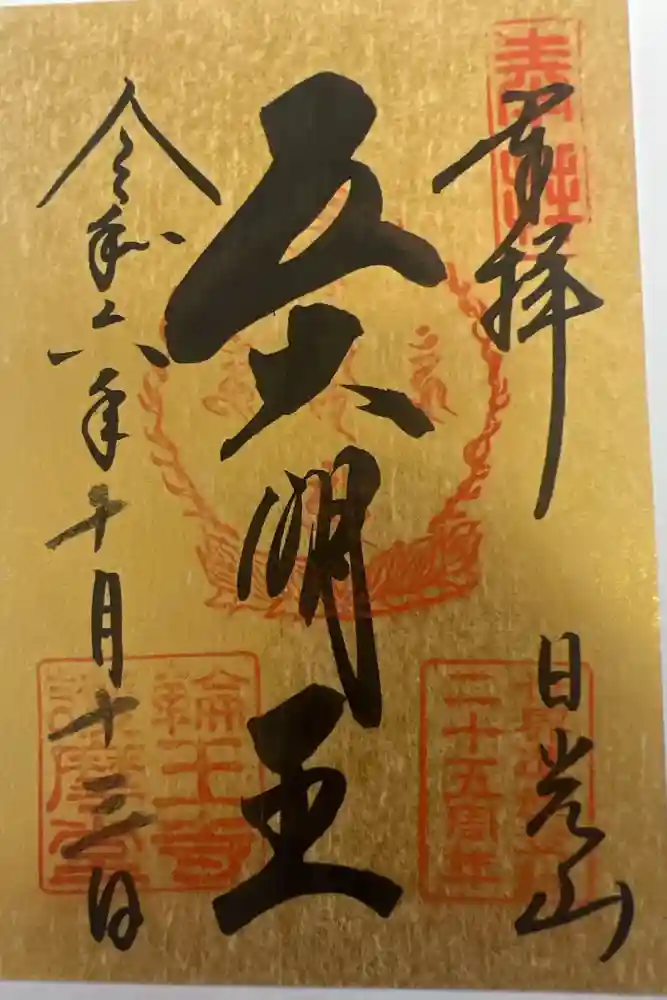 奉拝
日光山
五大明王
令和六年十月十三日
輪王寺
護摩堂
二十五周年